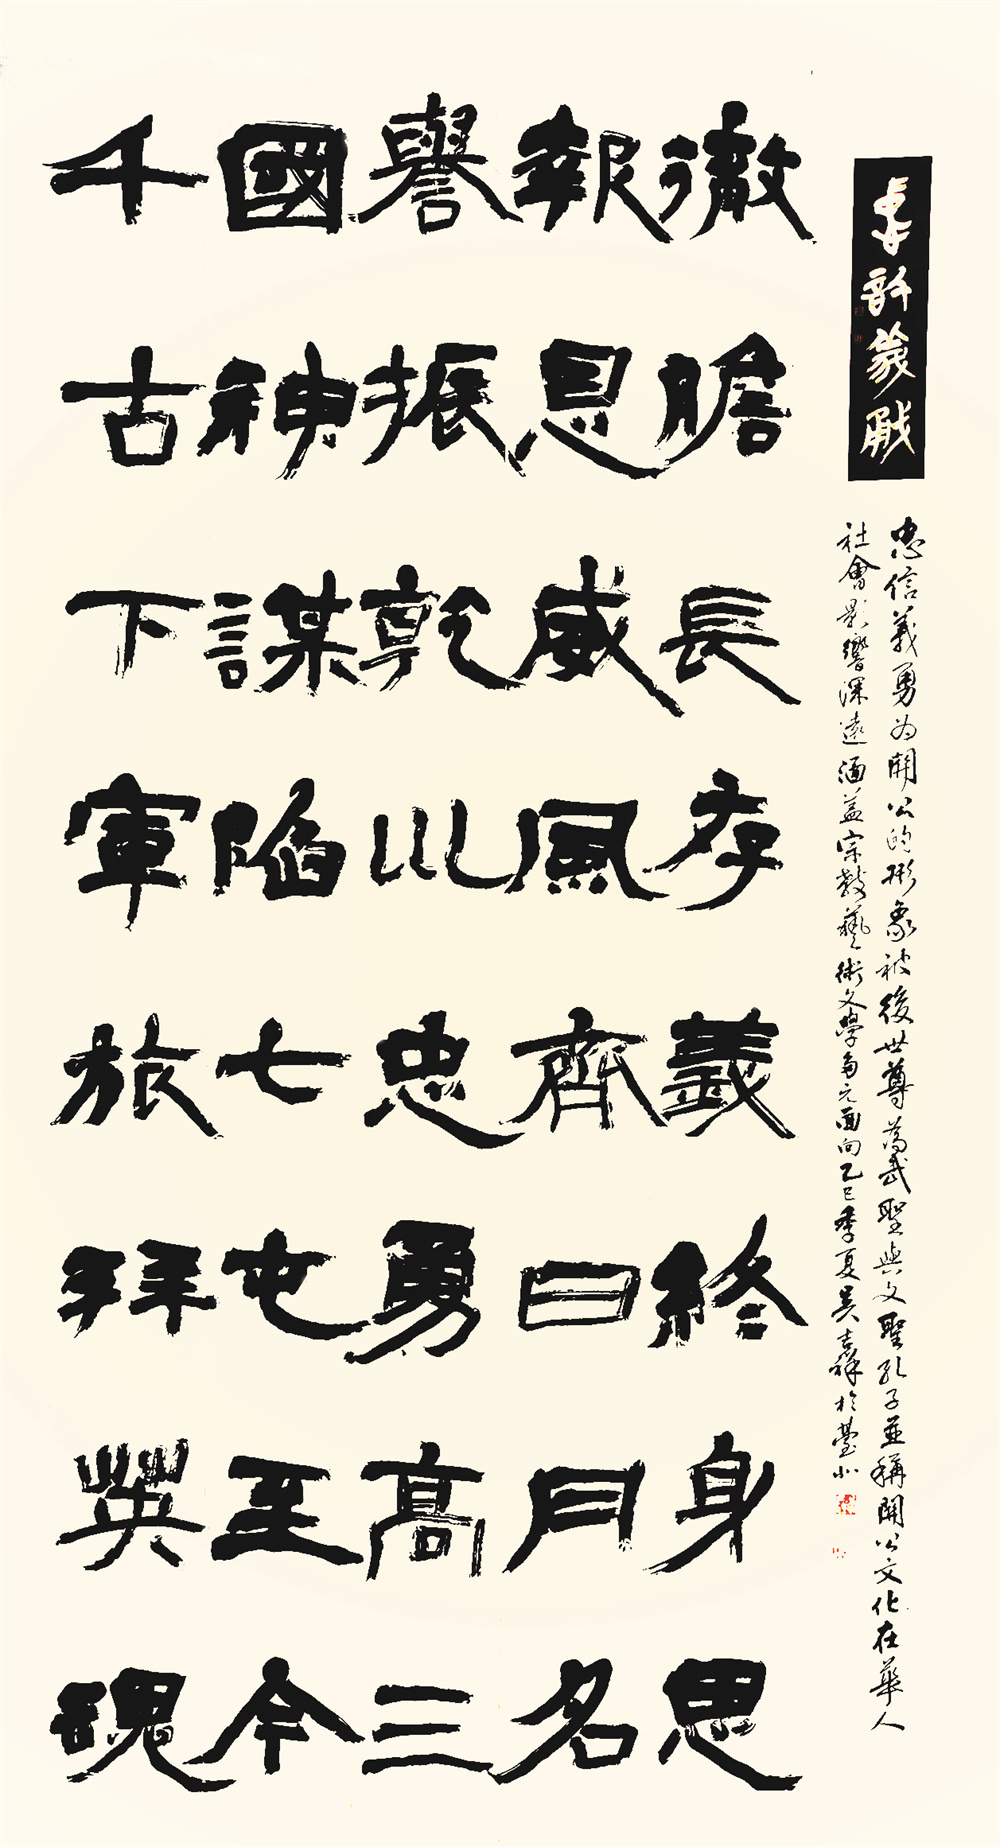 徹膽長存義終身思
報恩威風齊日月名
譽振乾坤忠勇高三
國神謀陷七屯至今
千古下軍旅拜英魂
忠信義勇為關公的形象被後世尊為武聖與文聖孔子並稱關公文化在華人
社會影響深遠涵蓋宗教藝術文學多元面向乙巳季夏吳吉祥於臺北